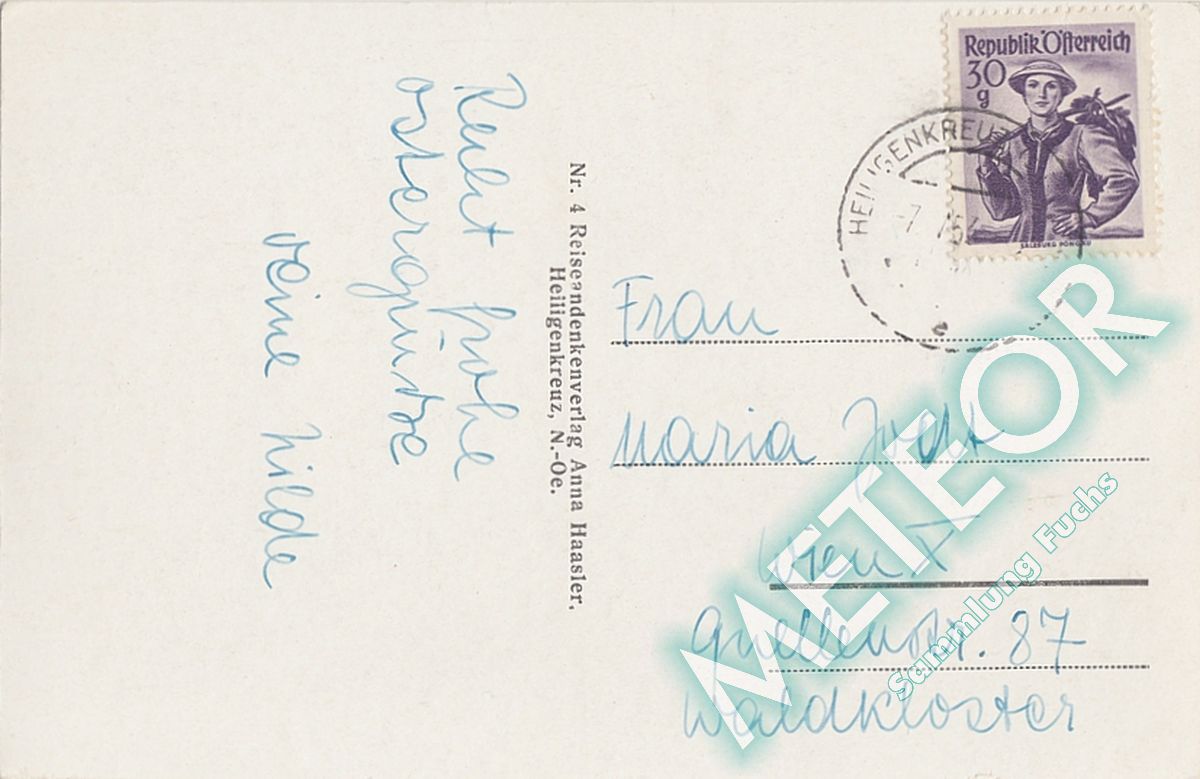 Recht frohe
Ostergrüße
deine Hilde
Nr. 4 Reiseandenkenverlag Anna Haasler,
Heiligenkreuz, N.-Oe.
Republik Österreich
30
g
SALZBURG PONGAU
HEILIGENKREUZ
Frau
Maria
Wien X
Quellenstr. 87
Waldkloster
METEOR
Sammlung Fuchs